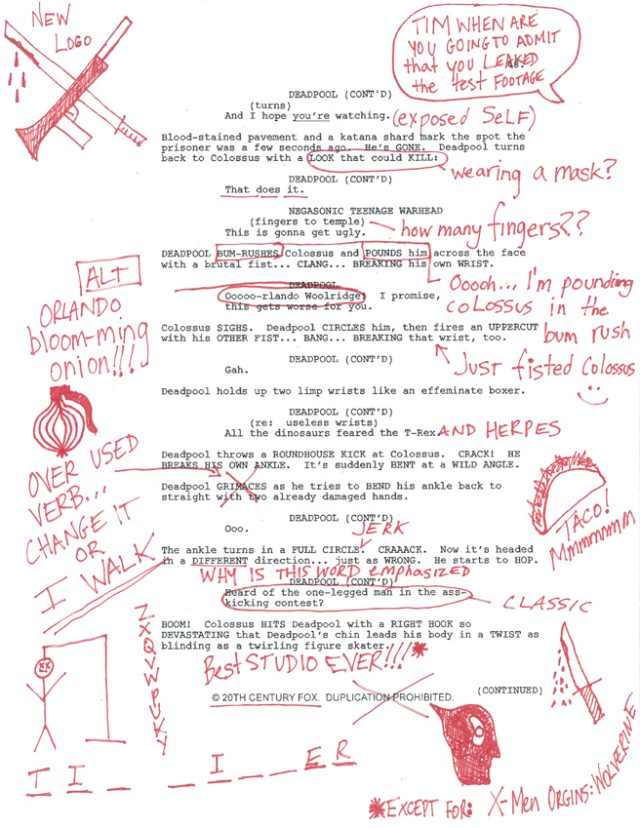 NEW
LOGO
TIM WHEN ARE
YOU GOING TO ADMIT
that you LEAKED
the test FOOTAGE
DEADPOOL (CONT'D)
(turns)
And I hope you're watching. (exposed SELF)
Blood-stained pavement and a katana shard mark the spot the
prisoner was a few seconds ago. He's GONE. Deadpool turns
back to Colossus with a LOOK that could KILL:
wearing a mask?
DEADPOOL (CONT'D)
That does it.
NEGASONIC TEENAGE WARHEAD
(fingers to temple)
how many fingers??
This is gonna get ugly.
DEADPOOL BUM-RUSHES Colossus and POUNDS him across the face
with a brutal fist... CLANG... BREAKING his own WRIST.
ALT
ORLANDO
bloom-ming
onion!!!
Ooooh... I'm pounding
coLossus in the
bum rush
DEADPOOL
Ooooo-rlando Woolridge! I promise,
this gets worse for you.
Colossus SIGHS. Deadpool CIRCLES him, then fires an UPPERCUT
with his OTHER FIST... BANG... BREAKING that wrist, too.
Just fisted Colossus
DEADPOOL (CONT'D)
Gah.
Deadpool holds up two limp wrists like an effeminate boxer.
DEADPOOL (CONT'D)
(re: useless wrists)
All the dinosaurs feared the T-Rex. AND HERPES
Deadpool throws a ROUNDHOUSE KICK at Colossus. CRACK! HE
BREAKS HIS OWN ANKLE. It's suddenly BENT at a WILD ANGLE.
OVER USED
VERB...
CHANGE IT
OR
I WALK
Deadpool GRIMACES as he tries to BEND his ankle back to
straight with two already damaged hands.
TACO!
Mmmmmmmm
DEADPOOL (CONT'D)
Ooo.
JERK
The ankle turns in a FULL CIRCLE. CRAAACK. Now it's headed
in a DIFFERENT direction... just as WRONG. He starts to HOP.
WHY IS THIS WORD emphasized
DEADPOOL (CONT'D)
Heard of the one-legged man in the ass-
kicking contest?
CLASSIC
BOOM! Colossus HITS Deadpool with a RIGHT HOOK so
DEVASTATING that Deadpool's chin leads his body in a TWIST as
blinding as a twirling figure skater.
Best STUDIO EVER!!!*
Z
X
Q
V
W
P
U
K
Y
© 20TH CENTURY FOX. DUPLICATION PROHIBITED.
(CONTINUED)
T I _ _ I _ _ E R
*EXCEPT FOR: X-Men ORGINS: WOLVERINE